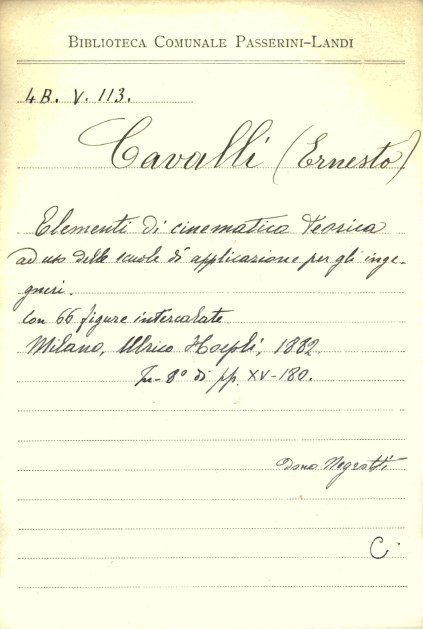 BIBLIOTECA COMUNALE PASSERINI-LANDI
4B. V. 113.
Cavalli (Ernesto)
Elementi di cinematica teorica
ad uso delle scuole di applicazione per gli inge-
gneri.
Con 66 figure intercalate
Milano, Ulrico Hoepli, 1882.
In-8° di pp. XV-180.
Dono Negrotti
C